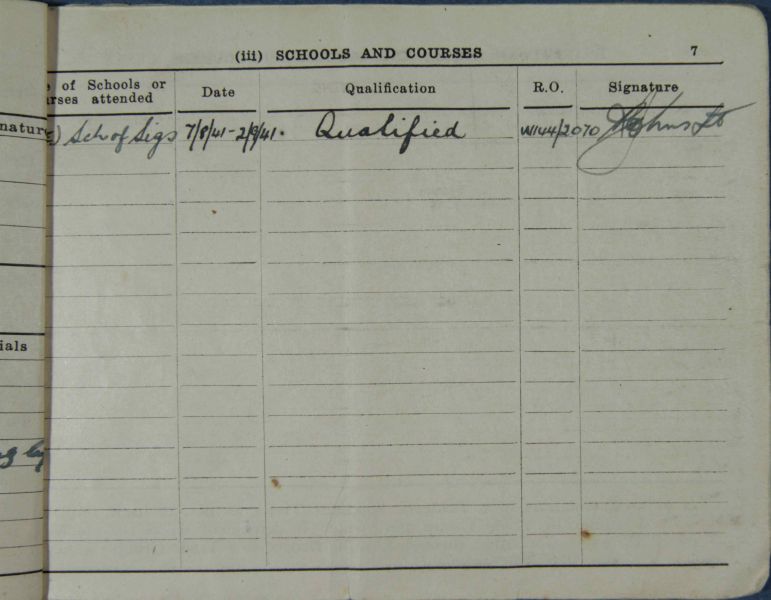 (iii) SCHOOLS AND COURSES 7
of Schools or
rses attended
Date
Qualification
R.O.
Signature
nature
) Sch of Sigs 7/8/41 - 2/9/41. Qualified W144/2070 Johns Lt
ials